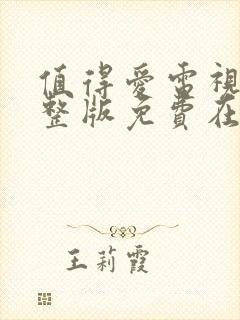 值得愛電視
整版免費在
王莉霞